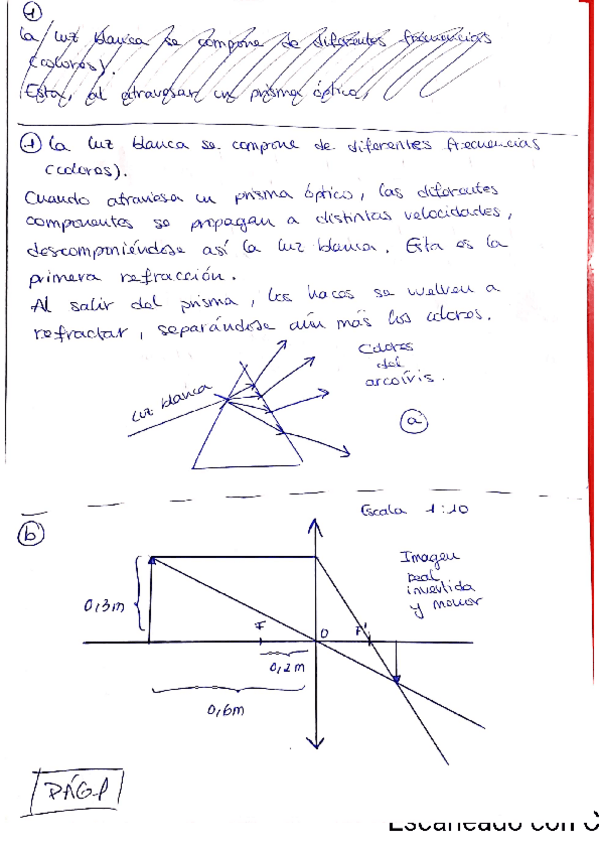 1
La luz blanca se compone de diferentes frecuencias
(colores).
Esta, al atravesar un prisma óptico,
1 La luz blanca se compone de diferentes frecuencias
(colores).
Cuando atraviesa un prisma óptico, las diferentes
componentes se propagan a distintas velocidades,
descomponiéndose así la luz blanca. Esta es la
primera refracción.
Al salir del prisma, los haces se vuelven a
refractar, separándose aún más los colores.
luz blanca
Colores
del
arcoíris.
a
b
Escala 1:10
Imagen
real
invertida
y menor
0,3m
F
O
F'
0,2m
0,6m
PÁG.1
Escaneado con C